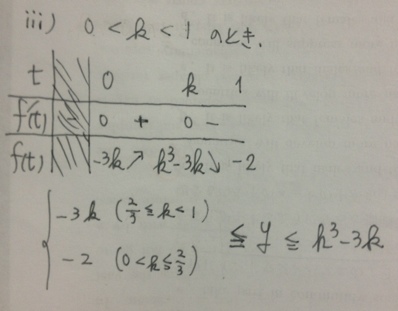 iii) 0 < k < 1 のとき.
t 0 k 1
f'(t) - 0 + 0 -
f(t) -3k ↗ k³-3k ↘ -2
-3k (2/3 ≦ k < 1)
-2 (0 < k ≦ 2/3)
≦ y ≦ k³-3k